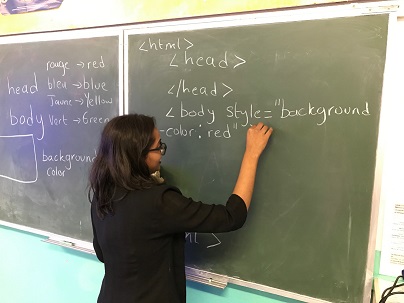 rouge → red
head bleu → blue
Jaune → Yellow
body Vert → Green
background
color
<html>
<head>
</head>
<body style="background
color: red"